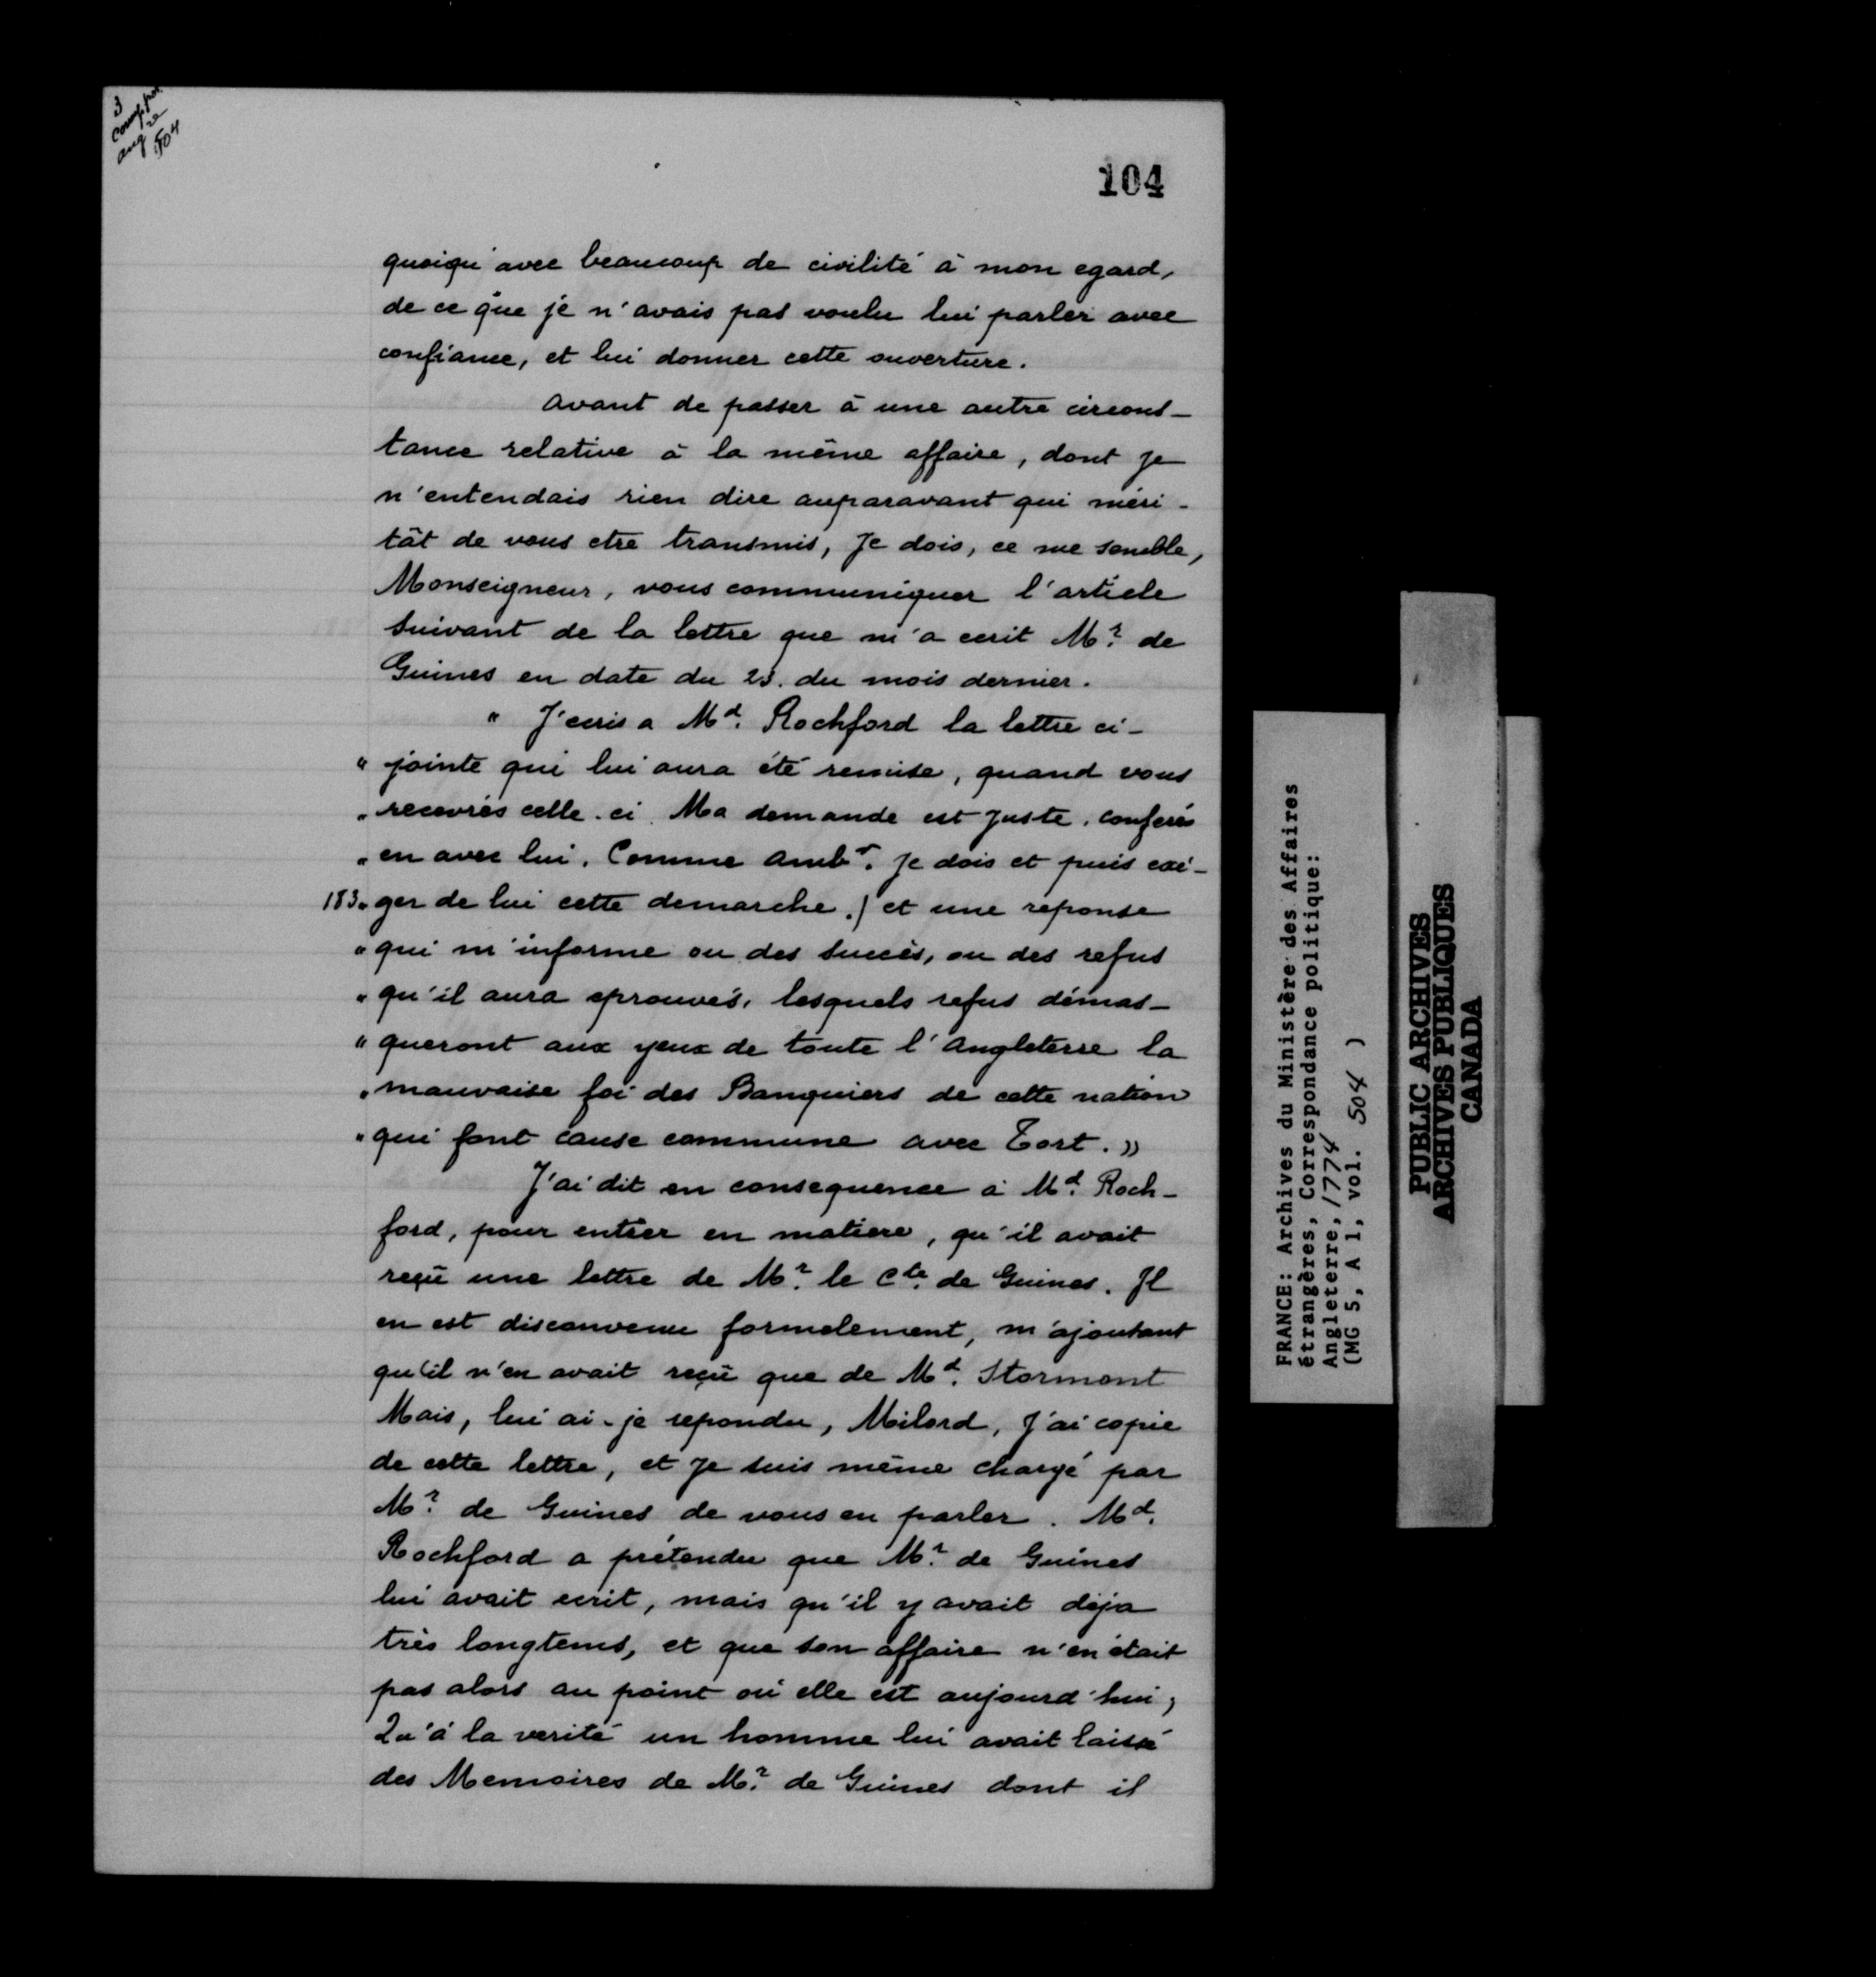 3
Corr. pol.
Ang re
504
104
quoiqu'avec beaucoup de civilité à mon egard,
de ce que je n'avais pas voulu lui parler avec
confiance, et lui donner cette ouverture.
Avant de passer à une autre circons-
tance relative à la même affaire, dont Je
n'entendais rien dire auparavant qui méri-
tât de vous etre transmis, Je dois, ce me semble,
Monseigneur, vous communiquer l'article
suivant de la lettre que m'a ecrit Mr. de
Guines en date du 23. du mois dernier.
" J'ecris a Md. Rochford la lettre ci-
" jointe qui lui aura été remise, quand vous
" recevrés celle-ci. Ma demande est Juste. conferés
" en avec lui. Comme Ambr. Je dois et puis exi-
183 " ger de lui cette demarche, / et une reponse
" qui m'informe ou des succès, ou des refus
" qu'il aura eprouvés, lesquels refus démas-
" queront aux yeux de toute l'Angleterre la
" mauvaise foi des Banquiers de cette nation
" qui font cause commune avec Tort. »
J'ai dit en consequence à Md. Roch-
ford, pour entrer en matiere, qu'il avait
reçû une lettre de Mr. le Cte. de Guines. Il
en est disconvenu formelement, m'ajoutant
qu'il n'en avait reçû que de Md. Stormont
Mais, lui ai-je repondu, Milord, J'ai copie
de cette lettre, et Je suis même chargé par
Mr. de Guines de vous en parler. Md.
Rochford a prétendu que Mr. de Guines
lui avait ecrit, mais qu'il y avait déja
très longtems, et que son affaire n'en était
pas alors au point où elle est aujourd'hui;
Qu'à la verité un homme lui avait laissé
des Memoires de Mr. de Guines dont il
FRANCE: Archives du Ministère des Affaires
étrangères, Correspondance politique:
Angleterre, 1774
(MG 5, A 1, vol. 504 )
PUBLIC ARCHIVES
ARCHIVES PUBLIQUES
CANADA